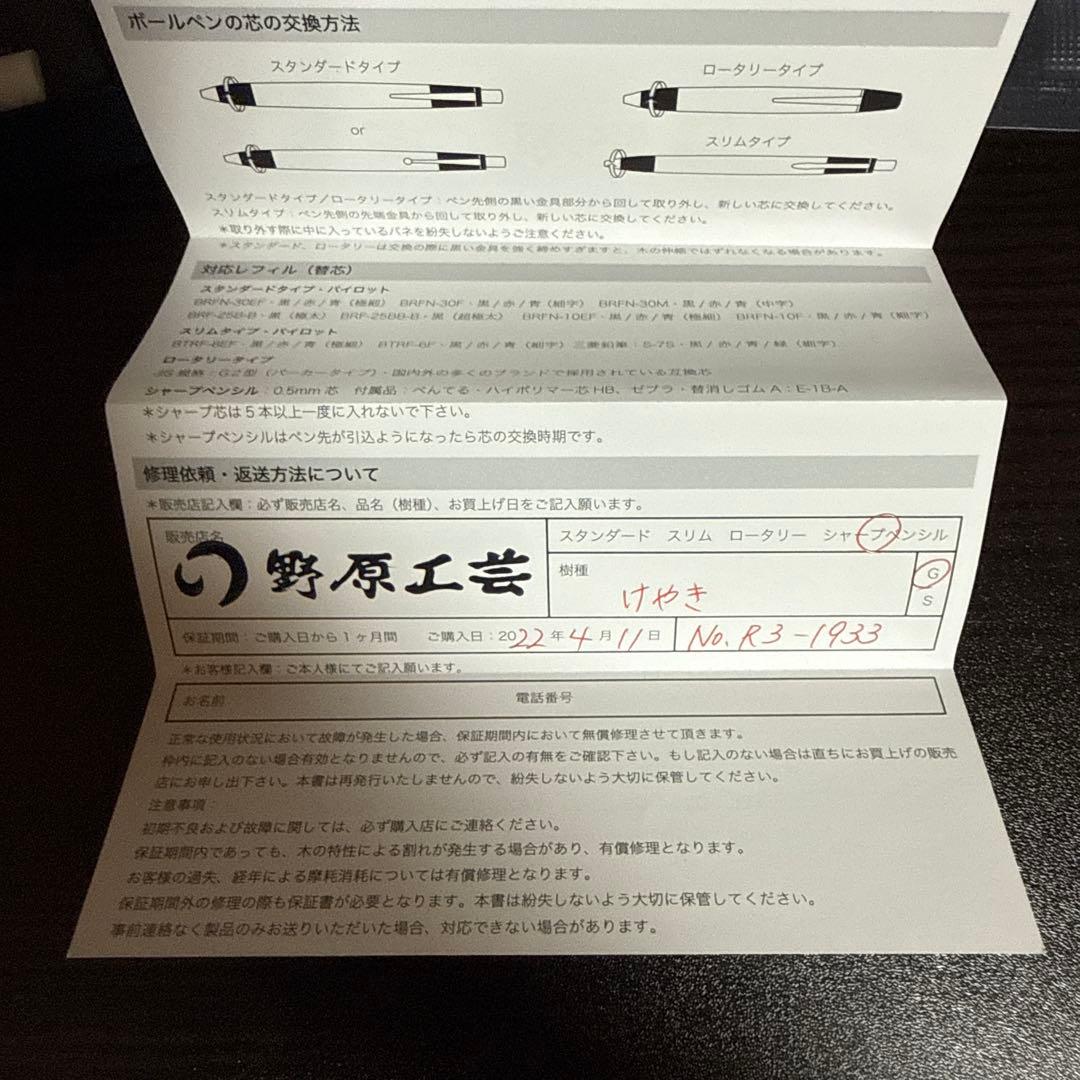 ボールペンの芯の交換方法
スタンダードタイプ
ロータリータイプ
or
スリムタイプ
スタンダードタイプ／ロータリータイプ：ペン先側の黒い金具部分から回して取り外し、新しい芯に交換してください。
スリムタイプ：ペン先側の先端金具から回して取り外し、新しい芯に交換してください。
＊取り外す際に中に入っているバネを紛失しないようご注意ください。
＊スタンダード、ロータリーは交換の際に黒い金具を強く締めすぎますと、木の伸縮ではずれなくなる場合があります。
対応レフィル（替芯）
スタンダードタイプ・パイロット
BRFN-30EF・黒/赤/青（極細） BRFN-30F・黒/赤/青（細字） BRFN-30M・黒/赤/青（中字）
BRF-25B-B・黒（極太） BRF-25BB-B・黒（超極太） BRFN-10EF・黒/赤/青（極細） BRFN-10F・黒/赤/青（細字）
スリムタイプ・パイロット
BTRF-6EF・黒/赤/青（極細） BTRF-6F・黒/赤/青（細字）三菱鉛筆：S-7S・黒/赤/青/緑（細字）
ロータリータイプ
JIS規格：G2型（パーカータイプ）・国内外の多くのブランドで採用されている互換芯
シャープペンシル：0.5mm芯 付属品：ぺんてる・ハイポリマー芯HB、ゼブラ・替消しゴムA：E-1B-A
＊シャープ芯は５本以上一度に入れないで下さい。
＊シャープペンシルはペン先が引込ようになったら芯の交換時期です。
修理依頼・返送方法について
＊販売店記入欄：必ず販売店名、品名（樹種）、お買上げ日をご記入願います。
販売店名
野原工芸
スタンダード スリム ロータリー シャープペンシル
樹種
けやき
G
S
保証期間：ご購入日から１ヶ月間 ご購入日：2022年4月11日 No. R3-1933
＊お客様記入欄：ご本人様にてご記入願います。
お名前 電話番号
正常な使用状況において故障が発生した場合、保証期間内において無償修理させて頂きます。
枠内に記入のない場合有効となりませんので、必ず記入の有無をご確認下さい。もし記入のない場合は直ちにお買上げの販売
店にお申し出下さい。本書は再発行いたしませんので、紛失しないよう大切に保管してください。
注意事項：
初期不良および故障に関しては、必ず購入店にご連絡ください。
保証期間内であっても、木の特性による割れが発生する場合があり、有償修理となります。
お客様の過失、経年による摩耗消耗については有償修理となります。
保証期間外の修理の際も保証書が必要となります。本書は紛失しないよう大切に保管してください。
事前連絡なく製品のみお送りいただいた場合、対応できない場合があります。